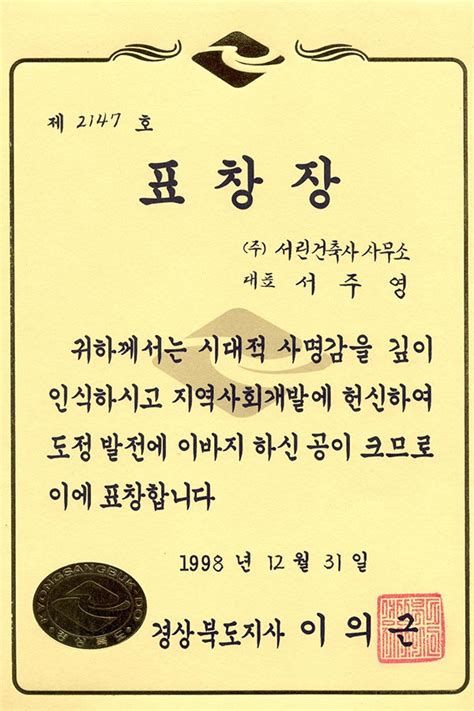 제 2147 호
표 창 장
(주) 서린건축사 사무소
대표 서 주 영
귀하께서는 시대적 사명감을 깊이
인식하시고 지역사회개발에 헌신하여
도정 발전에 이바지 하신 공이 크므로
이에 표창합니다
1998 년 12 월 31 일
KYONGSANGBUK-DO
경상북도
경상북도지사 이 의 근